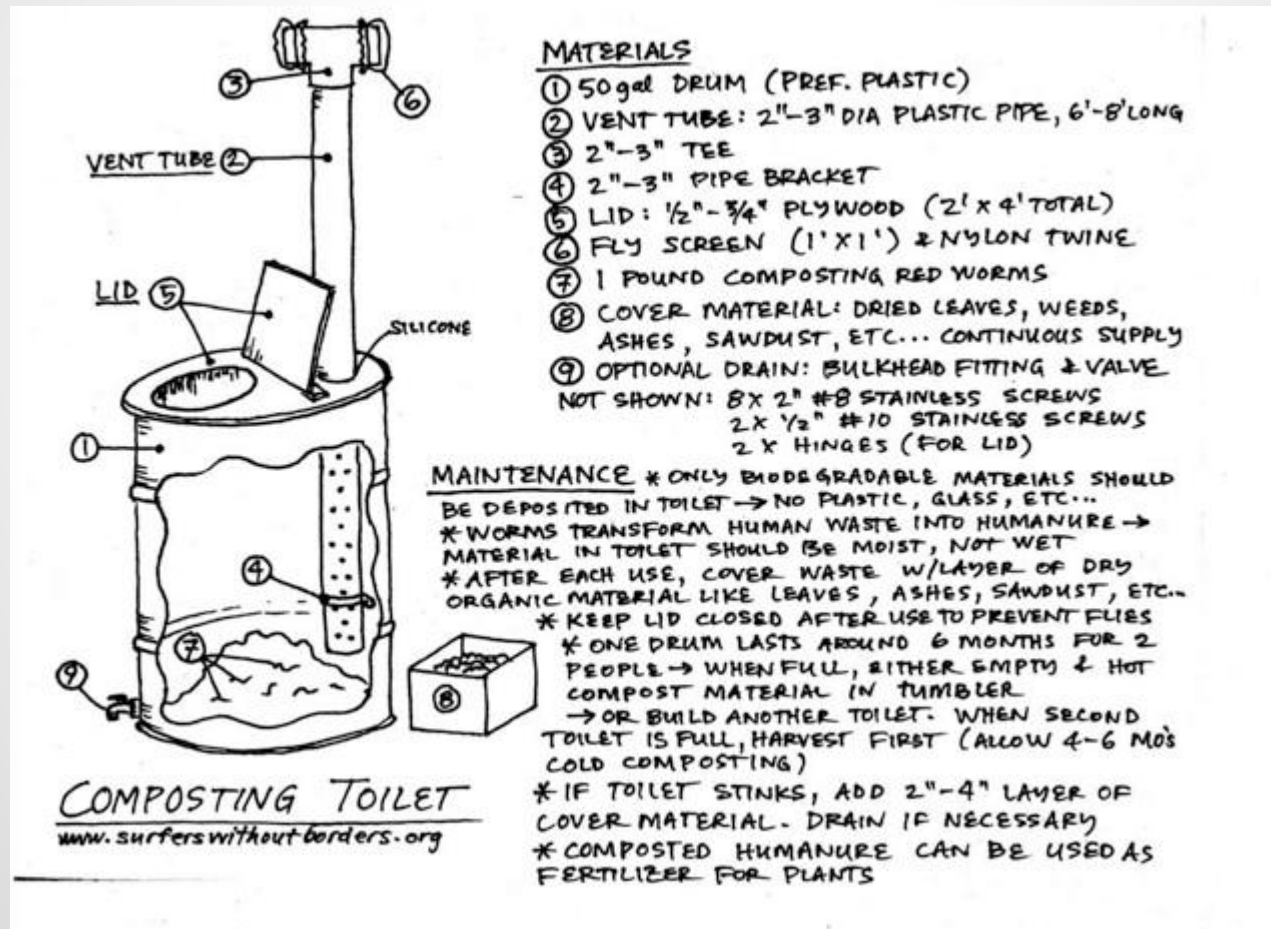 ③
⑥
VENT TUBE ②
LID ⑤
SILICONE
①
④
⑦
⑨
⑧
COMPOSTING TOILET
www.surferswithoutborders.org
MATERIALS
① 50gal DRUM (PREF. PLASTIC)
② VENT TUBE: 2"-3" DIA PLASTIC PIPE, 6'-8' LONG
③ 2"-3" TEE
④ 2"-3" PIPE BRACKET
⑤ LID: 1/2"-3/4" PLYWOOD (2' X 4' TOTAL)
⑥ FLY SCREEN (1'X1') & NYLON TWINE
⑦ 1 POUND COMPOSTING RED WORMS
⑧ COVER MATERIAL: DRIED LEAVES, WEEDS,
ASHES, SAWDUST, ETC... CONTINUOUS SUPPLY
⑨ OPTIONAL DRAIN: BULKHEAD FITTING & VALVE
NOT SHOWN: 8X 2" #8 STAINLESS SCREWS
2X 1/2" #10 STAINLESS SCREWS
2 X HINGES (FOR LID)
MAINTENANCE * ONLY BIODEGRADABLE MATERIALS SHOULD
BE DEPOSITED IN TOILET → NO PLASTIC, GLASS, ETC...
* WORMS TRANSFORM HUMAN WASTE INTO HUMANURE →
MATERIAL IN TOILET SHOULD BE MOIST, NOT WET
* AFTER EACH USE, COVER WASTE W/LAYER OF DRY
ORGANIC MATERIAL LIKE LEAVES, ASHES, SAWDUST, ETC...
* KEEP LID CLOSED AFTER USE TO PREVENT FLIES
* ONE DRUM LASTS AROUND 6 MONTHS FOR 2
PEOPLE → WHEN FULL, EITHER EMPTY & HOT
COMPOST MATERIAL IN TUMBLER
→ OR BUILD ANOTHER TOILET. WHEN SECOND
TOILET IS FULL, HARVEST FIRST (ALLOW 4-6 MO'S
COLD COMPOSTING)
* IF TOILET STINKS, ADD 2"-4" LAYER OF
COVER MATERIAL. DRAIN IF NECESSARY
* COMPOSTED HUMANURE CAN BE USED AS
FERTILIZER FOR PLANTS